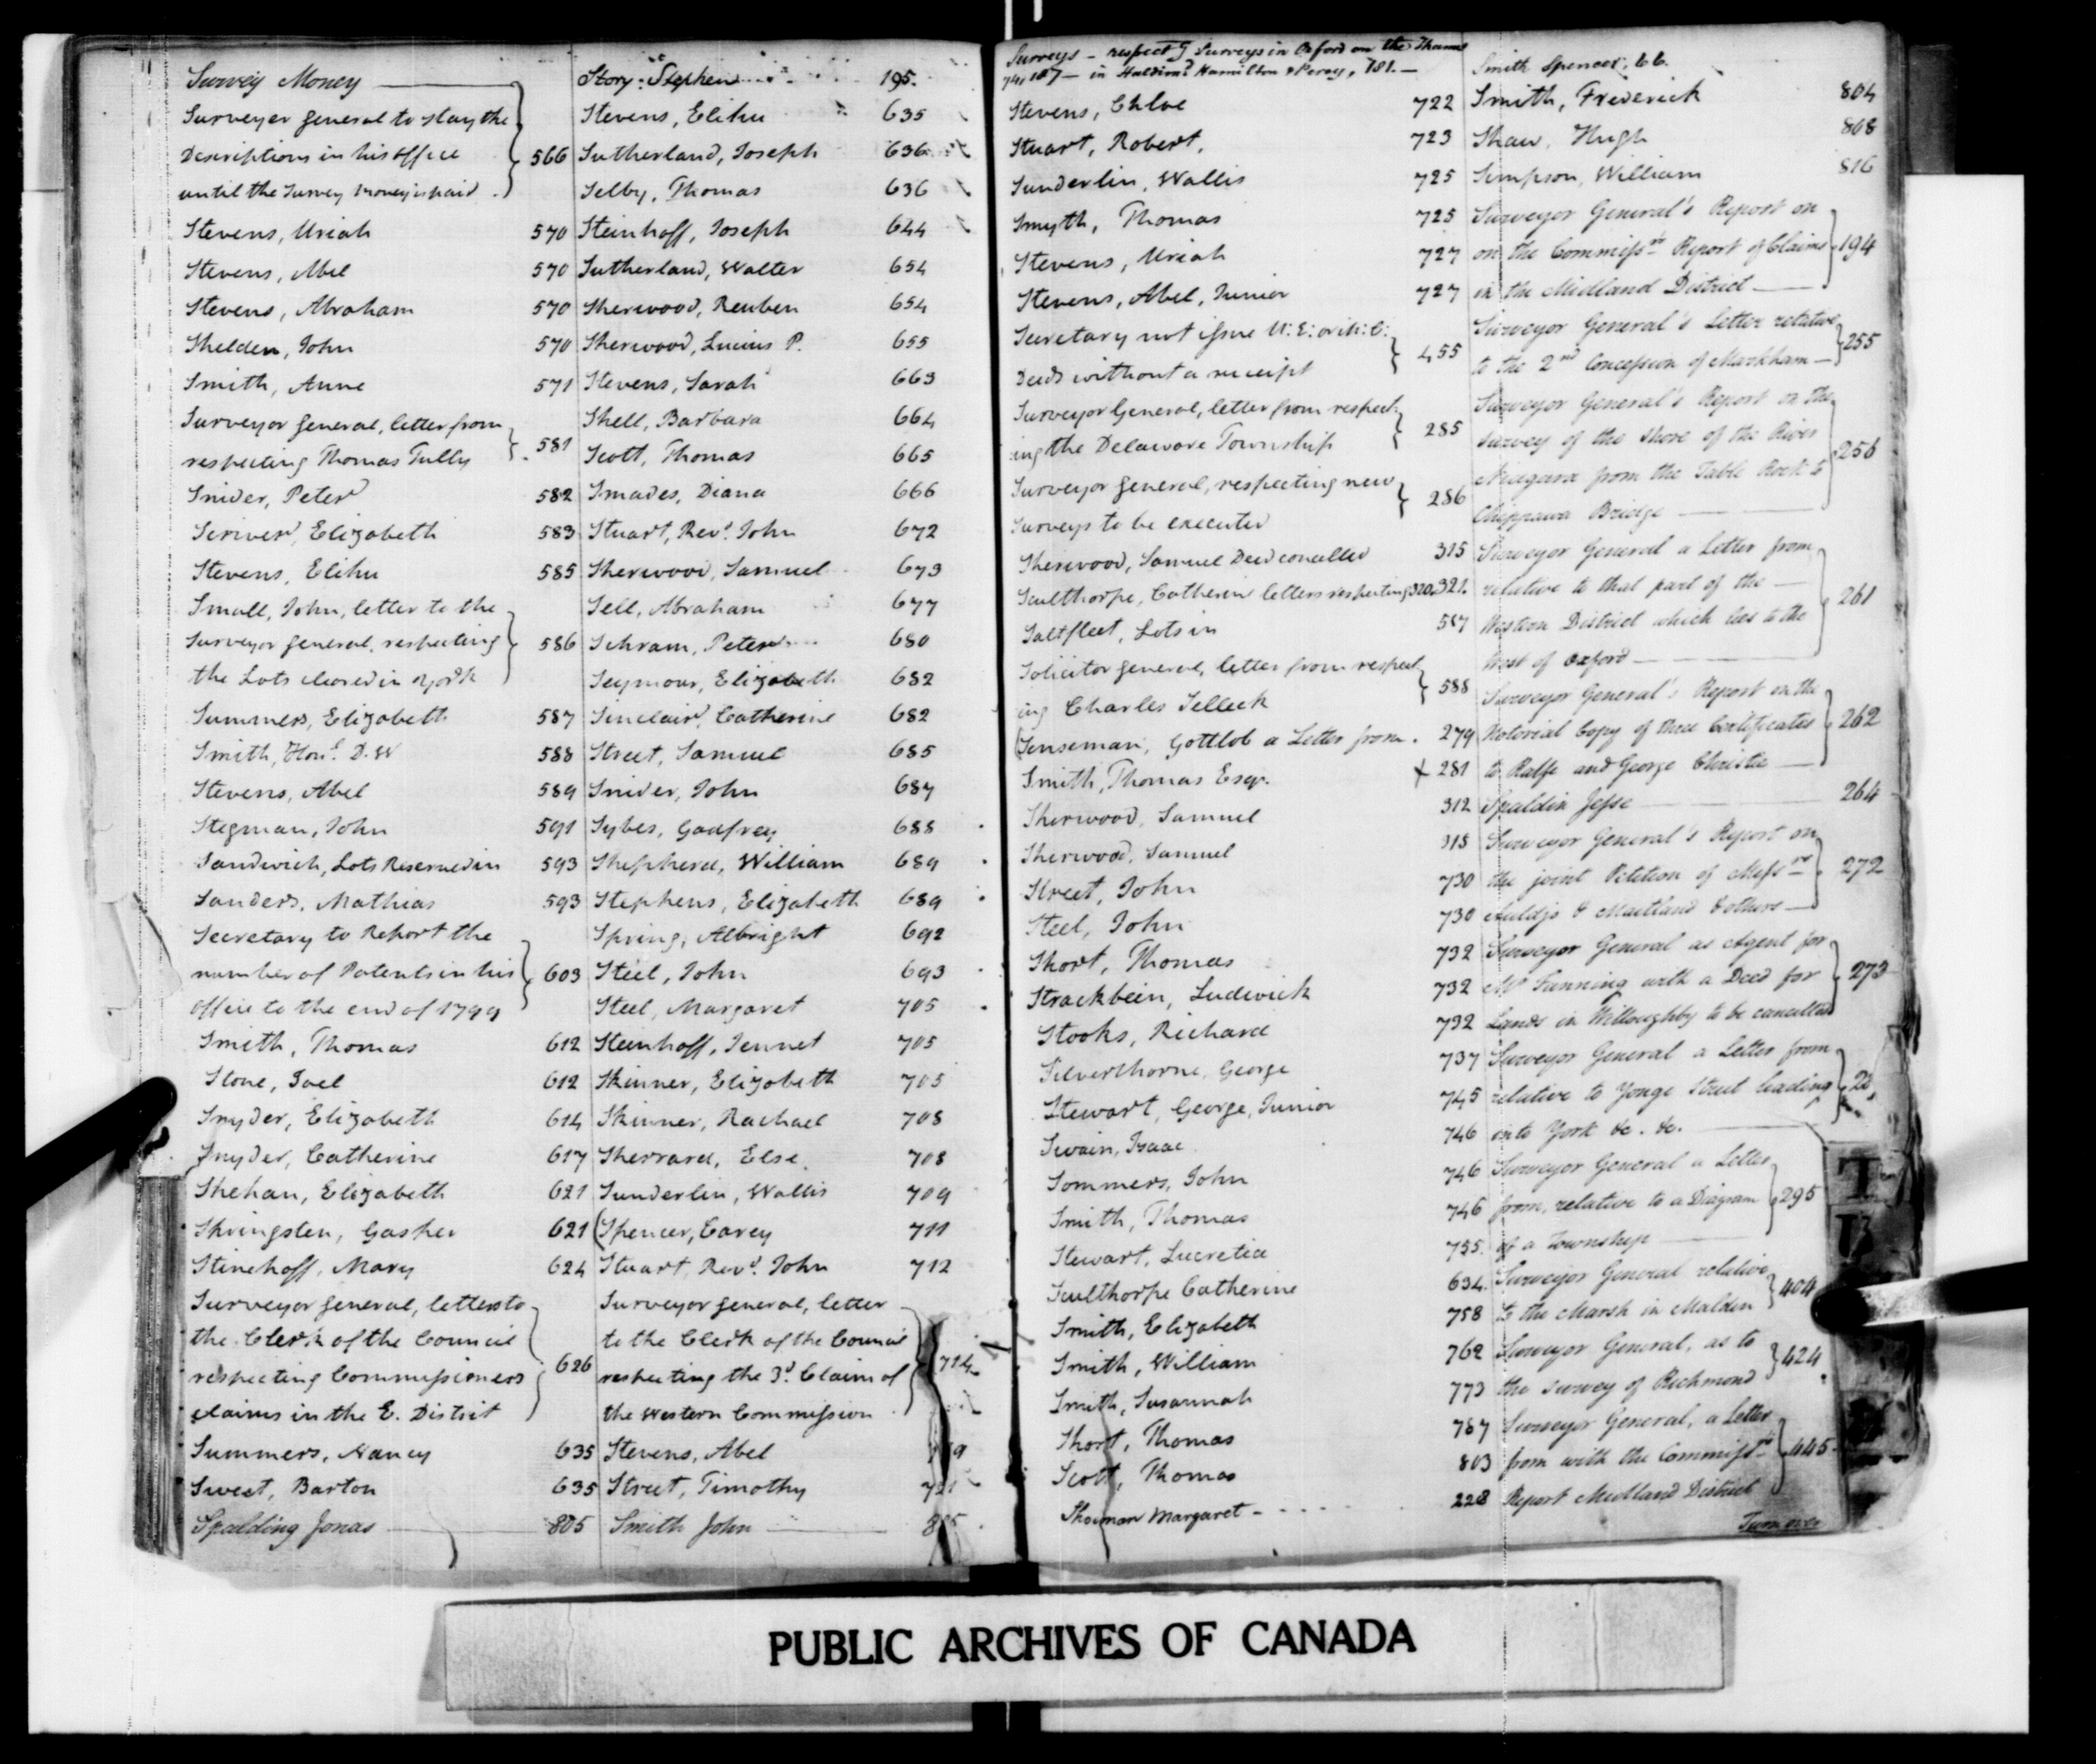 Survey Money
Surveyor general to stay the
Descriptions in his office 566
until the Survey Money is paid
Stevens, Uriah 570
Stevens, Abel 570
Stevens, Abraham 570
Shelden, John 570
Smith, Anne 571
Surveyor general, letter from
respecting Thomas Tully 581
Snider, Peter 582
Scriver, Elizabeth 583
Stevens, Elihu 585
Small, John, letter to the
Surveyor general, respecting 586
the Lots cleared in York
Summers, Elizabeth 587
Smith, Honl. D. W 588
Stevens, Abel 589
Stegman, John 591
Sandwich, Lots Reserved in 593
Sanders, Mathias 593
Secretary to Report the
number of Patents in his 603
office to the end of 1799
Smith, Thomas 612
Stone, Joel 612
Snyder, Elizabeth 614
Snyder, Catherine 617
Shehan, Elizabeth 621
Skringsten, Gasper 621
Stinehoff, Mary 624
Surveyor general, letters to
the Clerk of the Council
respecting Commissioners 626
claims in the E. Distrit
Summers, Nancy 635
Sweet, Barton 635
Spalding Jonas 805
Story: Stephen 195.
Stevens, Elihu 635
Sutherland, Joseph 636
Selby, Thomas 636
Steinhoff, Joseph 644
Sutherland, Walter 654
Sherwood, Reuben 654
Sherwood, Lucius P. 655
Stevens, Sarah 663
Shell, Barbara 664
Scott, Thomas 665
Smades, Diana 666
Stuart, Revd. John 672
Sherwood, Samuel 673
Sell, Abraham 677
Schram, Peter 680
Seymour, Elizabeth 682
Sinclair, Catherine 682
Street, Samuel 685
Snider, John 687
Sybes, Godfrey 688
Shepherd, William 689
Stephens, Elizabeth 689
Spring, Albright 692
Steel, John 693
Steel, Margaret 705
Steinhoff, Jennet 705
Skinner, Elizabeth 705
Skinner, Rachael 708
Sherrard, Else. 708
Sunderlin, Wallis 709
(Spencer, Carey 711
Stuart, Revd. John 712
Surveyor general, letter
to the Clerk of the Council
respecting the 3d. Claim of 714
the Western Commission
Stevens, Abel
Street, Timothy
Smith John
Surveys - respectg Surveys in Oxford on the Thames
741, 187 - in Haldimd. Hamilton & Percy, 181. -
Stevens, Chloe 722
Stuart, Robert, 723
Sunderlin, Wallis 725
Smyth, Thomas 725
Stevens, Uriah 727
Stevens, Abel, Junior 727
Secretary not issue U: E: or M: C:
Deeds without a receipt 455
Surveyor General, letter from respect-
ing the Delaware Township 285
Surveyor general, respecting new
Surveys to be executed 286
Sherwood, Samuel Deed cancelled 315
Sculthorpe, Catherine letters respecting 320, 321.
Saltfleet, Lots in 587
Solicitor general, letter from respect
ing Charles Selleck 588
(Senseman, Gottlob a Letter from . 279
Smith, Thomas Esqr. 281
Sherwood, Samuel 312
Sherwood, Samuel 315
Street, John 730
Steel, John 730
Short, Thomas 732
Strackbein, Ludewick 732
Stooks, Richard 732
Silverthorne, George 737
Stewart, George, Junior 745
Swain, Isaac 746
Sommers, John 746
Smith, Thomas 746
Stewart, Lucretia 755.
Sculthorpe Catherine 634.
Smith, Elizabeth 758
Smith, William 762
Smith, Susannah 773
Short, Thomas 787
Scott, Thomas 803
Margaret - 228
Smith Spencer, 66.
Smith, Frederick 804
Shaw, Hugh 808
Simpson, William 816
Surveyor General's Report on
on the Commissrs Report of Claims 194
in the Midland District
Surveyor General's Letter relative
to the 2nd Concession of Markham 255
Surveyor General's Report on the
survey of the Shore of the River
Niagara from the Table Rock to 256
Chippawa Bridge
Surveyor General a Letter from
relative to that part of the 261
Western District which lies to the
West of Oxford
Surveyor General's Report on the
Notorial Copy of three Certificates 262
to Ralfe and George Christie
Spaldin Jesse 264
Surveyor General's Report on
the joint Petition of Messrs 272
Auldjo & Maitland & others
Surveyor General as Agent for
Mr Fanning with a Deed for 273
Lands in Willoughby to be cancelled
Surveyor General a Letter from
relative to Yonge Street leading
into York &c. &c.
Surveyor General a Letter
from, relative to a Diagram 295
of a Township
Surveyor General relative
to the Marsh in Malden 404
Surveyor General, as to
the survey of Richmond 424
Surveyor General, a Letter
from with the Commissrs 445
Report Midland District
Turn over
T
PUBLIC ARCHIVES OF CANADA